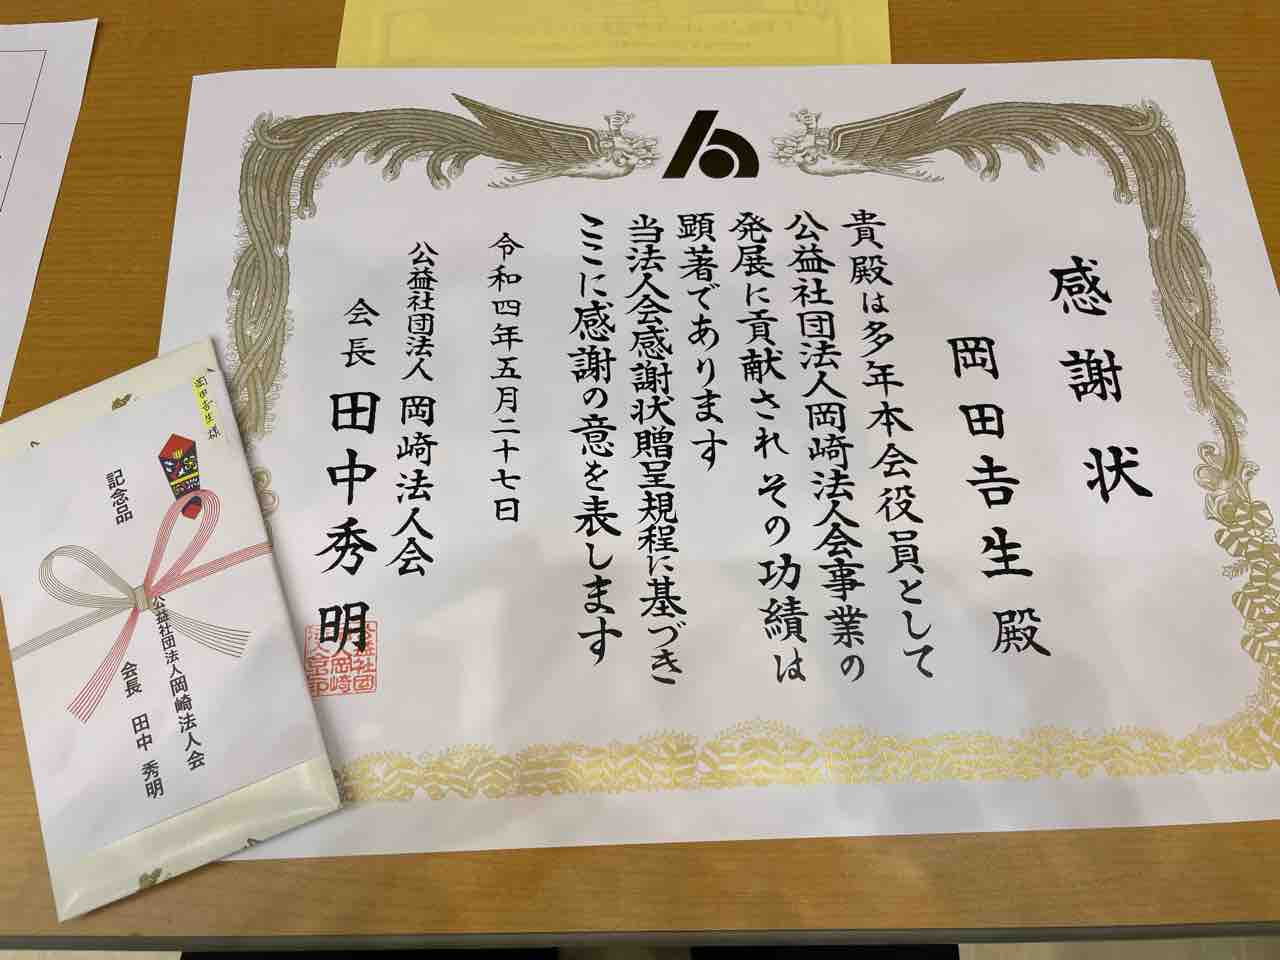 感謝状
岡田𠮷生殿
貴殿は多年本会役員として
公益社団法人岡崎法人会事業の
発展に貢献され その功績は
顕著であります
当法人会感謝状贈呈規程に基づき
ここに感謝の意を表します
令和四年五月二十七日
公益社団法人 岡崎法人会
会長 田中秀明
岡田吉生様
記念品
公益社団法人岡崎法人会
会長 田中 秀明